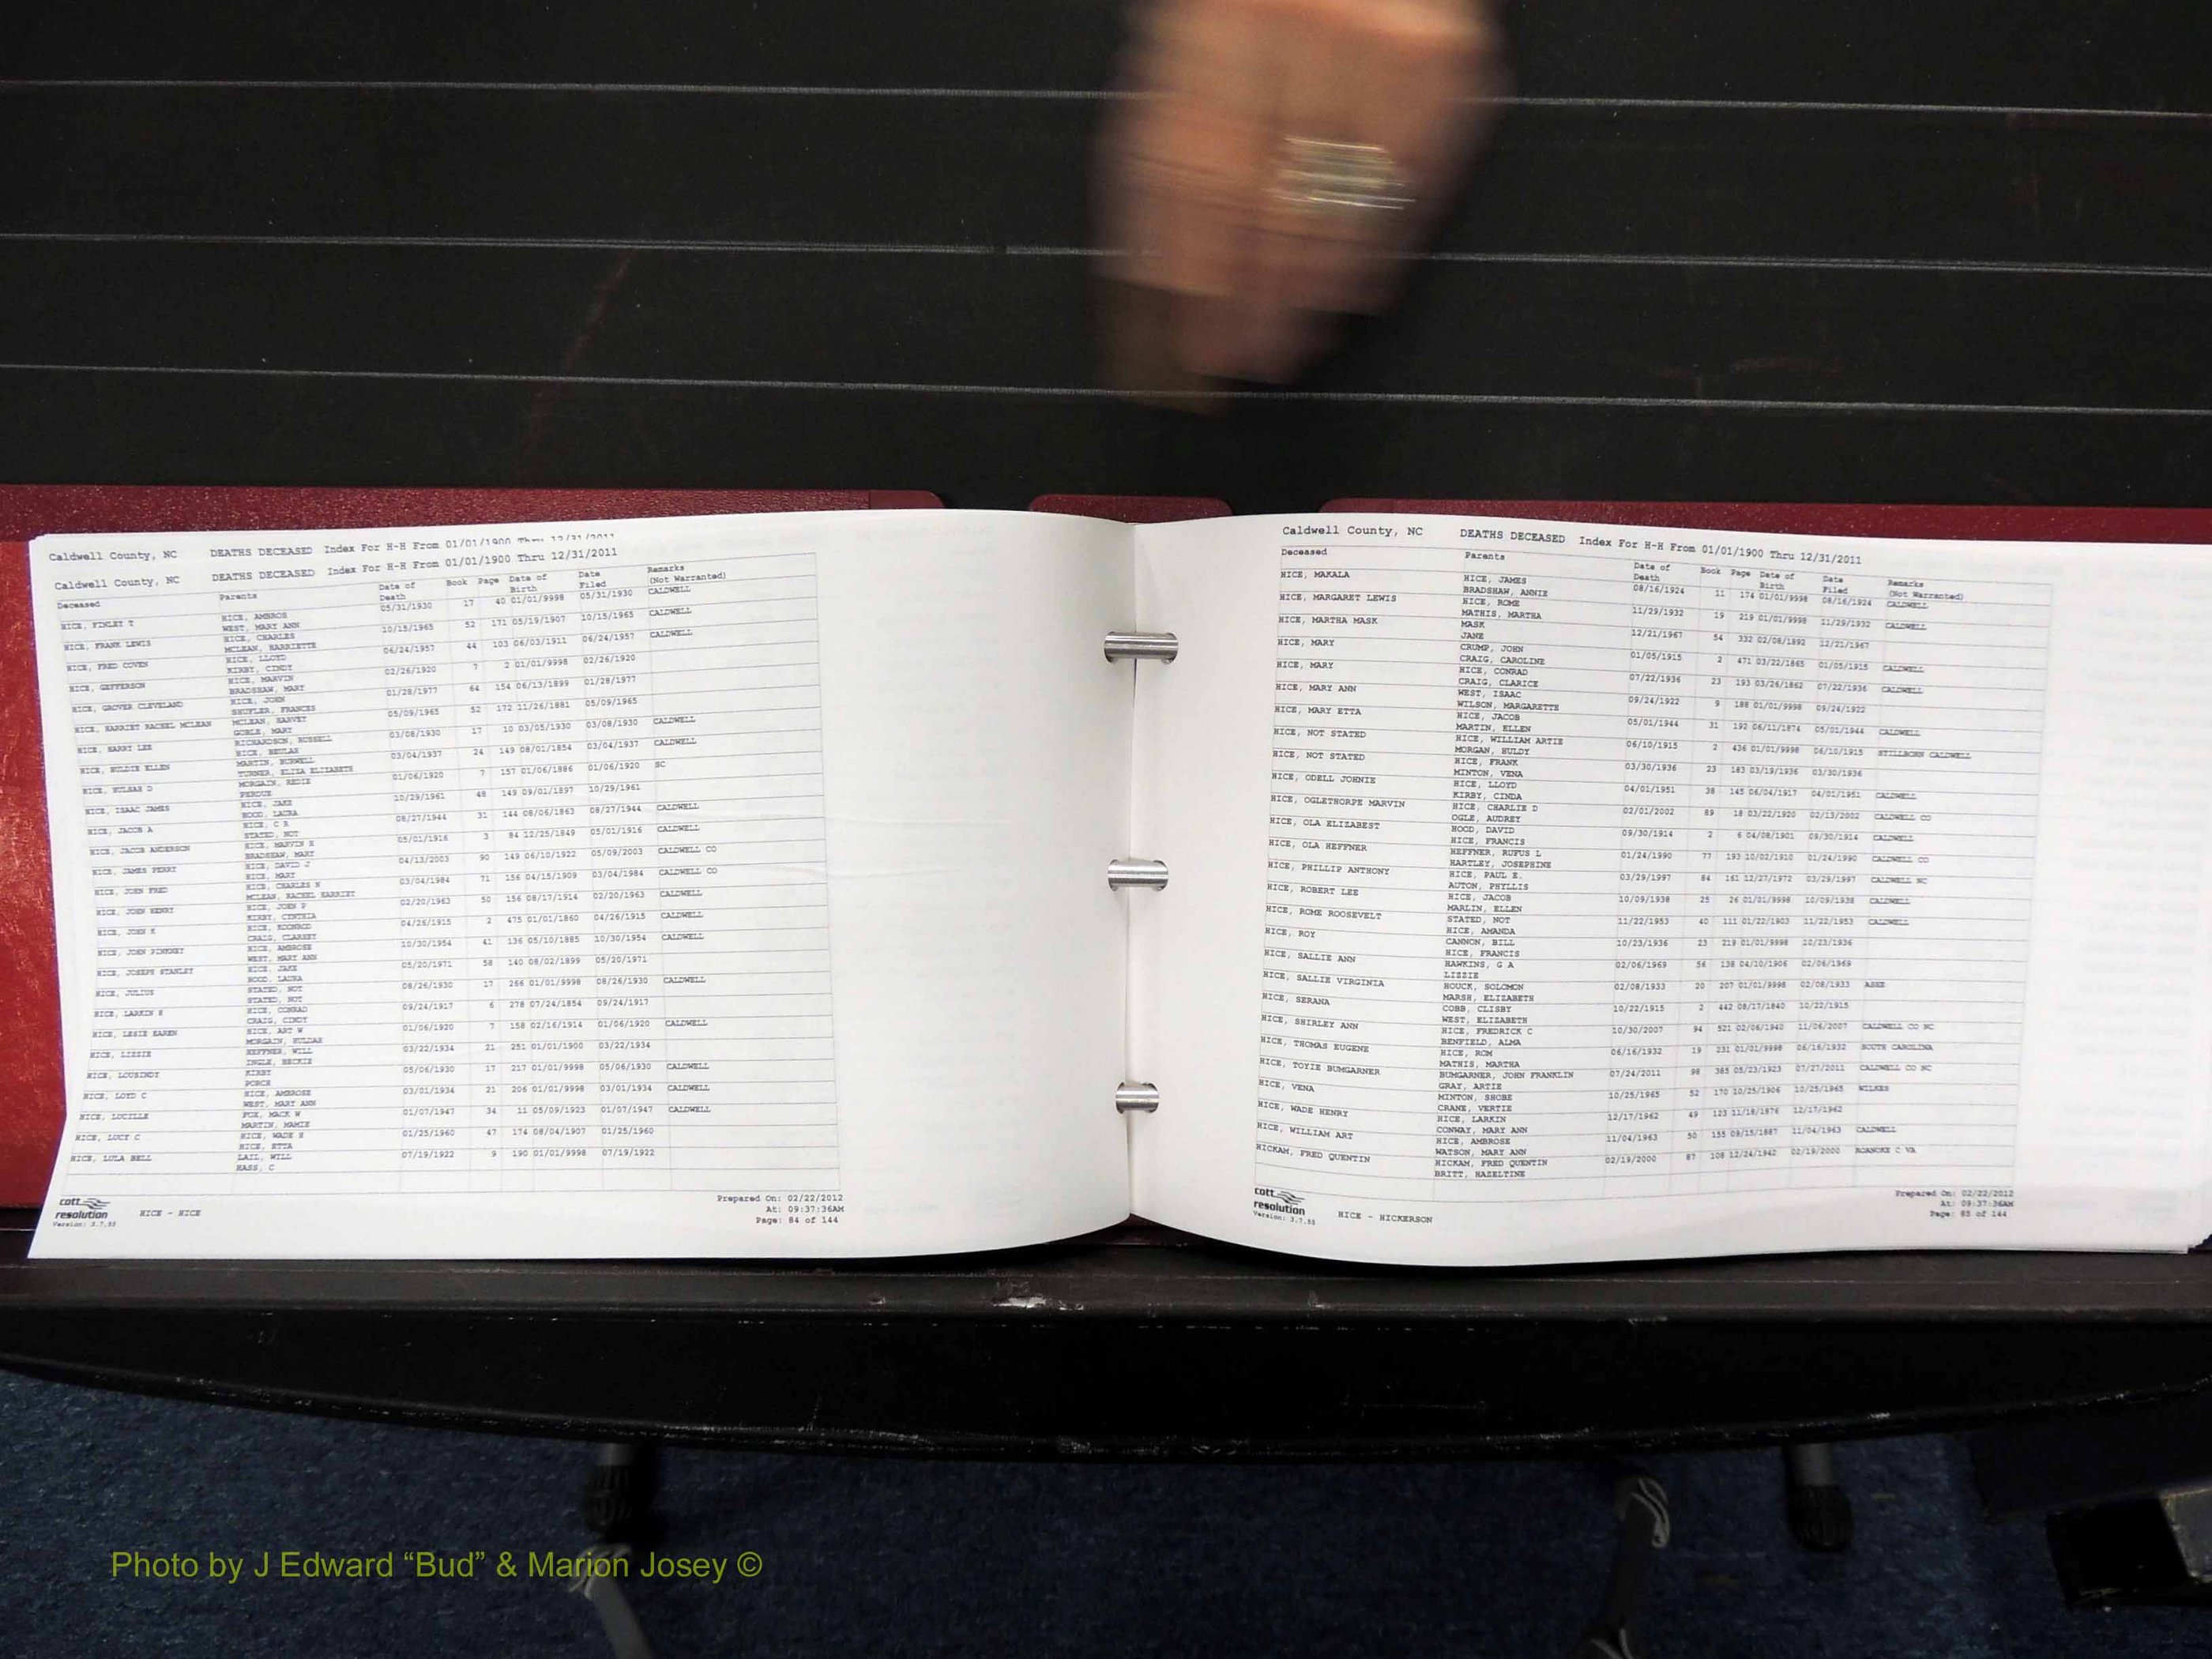 Caldwell County, NC DEATHS DECEASED Index For H-H From 01/01/1900 Thru 12/31/2011
Caldwell County, NC DEATHS DECEASED Index For H-H From 01/01/1900 Thru 12/31/2011
Deceased Parents Date of Death Book Page Date of Birth Date Filed Remarks (Not Warranted)
HICE, FINLEY T HICE, AMBROS 05/31/1930 17 40 01/01/9998 05/31/1930 CALDWELL
WEST, MARY ANN
HICE, FRANK LEWIS HICE, CHARLES 10/15/1965 52 171 05/19/1907 10/15/1965 CALDWELL
MCLEAN, HARRIETTE
HICE, FRED COVEN HICE, LLOYD 06/24/1957 44 103 06/03/1911 06/24/1957 CALDWELL
KIRBY, CINDY
HICE, GEFFERSON HICE, MARVIN 02/26/1920 7 2 01/01/9998 02/26/1920
BRADSHAW, MARY
HICE, GROVER CLEVELAND HICE, JOHN 01/28/1977 64 154 06/13/1899 01/28/1977
SHUFLER, FRANCES
HICE, HARRIET RACHEL MCLEAN MCLEAN, HARVEY 05/09/1965 52 172 11/26/1881 05/09/1965
GOBLE, MARY
HICE, HARRY LEE RICHARDSON, RUSSELL 03/08/1930 17 10 03/05/1930 03/08/1930 CALDWELL
HICE, BEULAH
HICE, HULDIE ELLEN MARTIN, BURWELL 03/04/1937 24 149 08/01/1854 03/04/1937 CALDWELL
TURNER, ELIZA ELIZABETH
HICE, HULDAH D MORGAIN, REDIE 01/06/1920 7 157 01/06/1886 01/06/1920 SC
PERDUE
HICE, ISAAC JAMES HICE, JAKE 10/29/1961 48 149 09/01/1897 10/29/1961
HOOD, LAURA
HICE, JACOB A HICE, C R 08/27/1944 31 144 08/06/1863 08/27/1944 CALDWELL
STATED, NOT
HICE, JACOB ANDERSON HICE, MARVIN H 05/01/1916 3 84 12/25/1849 05/01/1916 CALDWELL
BRADSHAW, MARY
HICE, JAMES PERRY HICE, DAVID J 04/13/2003 90 249 06/10/1922 05/09/2003 CALDWELL CO
HICE, MARY
HICE, JOHN FRED HICE, CHARLES N 03/04/1984 71 156 04/15/1909 03/04/1984 CALDWELL CO
MCLEAN, RACHEL HARRIET
HICE, JOHN HENRY HICE, JOHN P 02/20/1963 50 156 08/17/1914 02/20/1963 CALDWELL
KIRBY, CYNTHIA
HICE, JOHN K HICE, KOONROD 04/26/1915 2 475 01/01/1860 04/26/1915 CALDWELL
CRAIG, CLARSEY
HICE, JOHN PINKNEY HICE, AMBROSE 10/30/1954 41 136 05/10/1885 10/30/1954 CALDWELL
WEST, MARY ANN
HICE, JOSEPH STANLEY HICE, JAKE 05/20/1971 58 140 08/02/1899 05/20/1971
HOOD, LAURA
HICE, JULIUS STATED, NOT 08/26/1930 17 266 01/01/9998 08/26/1930 CALDWELL
STATED, NOT
HICE, LARKIN H HICE, CONRAD 09/24/1917 6 278 07/24/1854 09/24/1917
CRAIG, CINDY
HICE, LESIE EAREN HICE, ART W 01/06/1920 7 158 02/16/1914 01/06/1920 CALDWELL
MORGAIN, HULDAH
HICE, LIZZIE HEFFNER, WILL 03/22/1934 21 251 01/01/1900 03/22/1934
INGLE, BECKIE
HICE, LOUSINDY KIRBY 05/06/1930 17 217 01/01/9998 05/06/1930 CALDWELL
PORCH
HICE, LOYD C HICE, AMBROSE 03/01/1934 21 206 01/01/9998 03/01/1934 CALDWELL
WEST, MARY ANN
HICE, LUCILLE FOX, MACK W 01/07/1947 34 11 05/09/1923 01/07/1947 CALDWELL
MARTIN, MAMIE
HICE, LUCY C HICE, WADE H 01/25/1960 47 174 08/04/1907 01/25/1960
HICE, ETTA
HICE, LULA BELL LAIL, WILL 07/19/1922 9 190 01/01/9998 07/19/1922
BASS, C
cott resolution
Version: 3.7.55
HICE - HICE
Prepared On: 02/22/2012
At: 09:37:36AM
Page: 84 of 144
Caldwell County, NC DEATHS DECEASED Index For H-H From 01/01/1900 Thru 12/31/2011
Deceased Parents Date of Death Book Page Date of Birth Date Filed Remarks (Not Warranted)
HICE, MAKALA HICE, JAMES 08/16/1924 11 174 01/01/9998 08/16/1924 CALDWELL
BRADSHAW, ANNIE
HICE, MARGARET LEWIS HICE, ROME 11/29/1932 19 219 01/01/9998 11/29/1932 CALDWELL
MATHIS, MARTHA
HICE, MARTHA MASK MASK 12/21/1967 54 332 02/08/1892 12/21/1967
JANE
HICE, MARY CRUMP, JOHN 01/05/1915 2 471 03/22/1865 01/05/1915 CALDWELL
CRAIG, CAROLINE
HICE, MARY HICE, CONRAD 07/22/1936 23 193 03/26/1862 07/22/1936 CALDWELL
CRAIG, CLARICE
HICE, MARY ANN WEST, ISAAC 09/24/1922 9 188 01/01/9998 09/24/1922
WILSON, MARGARETTE
HICE, MARY ETTA HICE, JACOB 05/01/1944 31 192 06/11/1874 05/01/1944 CALDWELL
MARTIN, ELLEN
HICE, NOT STATED HICE, WILLIAM ARTIE 06/10/1915 2 436 01/01/9998 06/10/1915 STILLBORN CALDWELL
MORGAN, HULDY
HICE, NOT STATED HICE, FRANK 03/30/1936 23 183 03/19/1936 03/30/1936
MINTON, VENA
HICE, ODELL JOHNIE HICE, LLOYD 04/01/1951 38 145 06/04/1917 04/01/1951 CALDWELL
KIRBY, CINDA
HICE, OGLETHORPE MARVIN HICE, CHARLIE D 02/01/2002 89 18 03/22/1920 02/13/2002 CALDWELL CO
OGLE, AUDREY
HICE, OLA ELIZABEST HOOD, DAVID 09/30/1914 2 6 04/08/1901 09/30/1914 CALDWELL
HICE, FRANCIS
HICE, OLA HEFFNER HEFFNER, RUFUS L 01/24/1990 77 193 10/02/1910 01/24/1990 CALDWELL CO
HARTLEY, JOSEPHINE
HICE, PHILLIP ANTHONY HICE, PAUL E. 03/29/1997 84 161 12/27/1972 03/29/1997 CALDWELL NC
AUTON, PHYLLIS
HICE, ROBERT LEE HICE, JACOB 10/09/1938 25 26 01/01/9998 10/09/1938 CALDWELL
MARLIN, ELLEN
HICE, ROME ROOSEVELT STATED, NOT 11/22/1953 40 111 01/22/1903 11/22/1953 CALDWELL
HICE, AMANDA
HICE, ROY CANNON, BILL 10/23/1936 23 219 01/01/9998 10/23/1936
HICE, FRANCIS
HICE, SALLIE ANN HAWKINS, G A 02/06/1969 56 138 04/10/1906 02/06/1969
LIZZIE
HICE, SALLIE VIRGINIA HOUCK, SOLOMON 02/08/1933 20 207 01/01/9998 02/08/1933 ASHE
MARSH, ELIZABETH
HICE, SERANA COBB, CLISBY 10/22/1915 2 442 08/17/1840 10/22/1915
WEST, ELIZABETH
HICE, SHIRLEY ANN HICE, FREDRICK C 10/30/2007 94 521 02/06/1940 11/06/2007 CALDWELL CO NC
BENFIELD, ALMA
HICE, THOMAS EUGENE HICE, ROM 06/16/1932 19 231 01/01/9998 06/16/1932 SOUTH CAROLINA
MATHIS, MARTHA
HICE, TOYIE BUMGARNER BUMGARNER, JOHN FRANKLIN 07/24/2011 98 385 05/23/1923 07/27/2011 CALDWELL CO NC
GRAY, ARTIE
HICE, VENA MINTON, SHOBE 10/25/1965 52 170 10/25/1906 10/25/1965 WILKES
CRANE, VERTIE
HICE, WADE HENRY HICE, LARKIN 12/17/1962 49 123 11/18/1876 12/17/1962
CONWAY, MARY ANN
HICE, WILLIAM ART HICE, AMBROSE 11/04/1963 50 155 09/15/1887 11/04/1963 CALDWELL
WATSON, MARY ANN
HICKAM, FRED QUENTIN HICKAM, FRED QUENTIN 02/19/2000 87 108 12/24/1942 02/19/2000 ROANOKE C VA
BRITT, HAZELTINE
cott resolution
Version: 3.7.55
HICE - HICKERSON
Prepared On: 02/22/2012
At: 09:37:36AM
Page: 85 of 144
Photo by J Edward “Bud” & Marion Josey ©